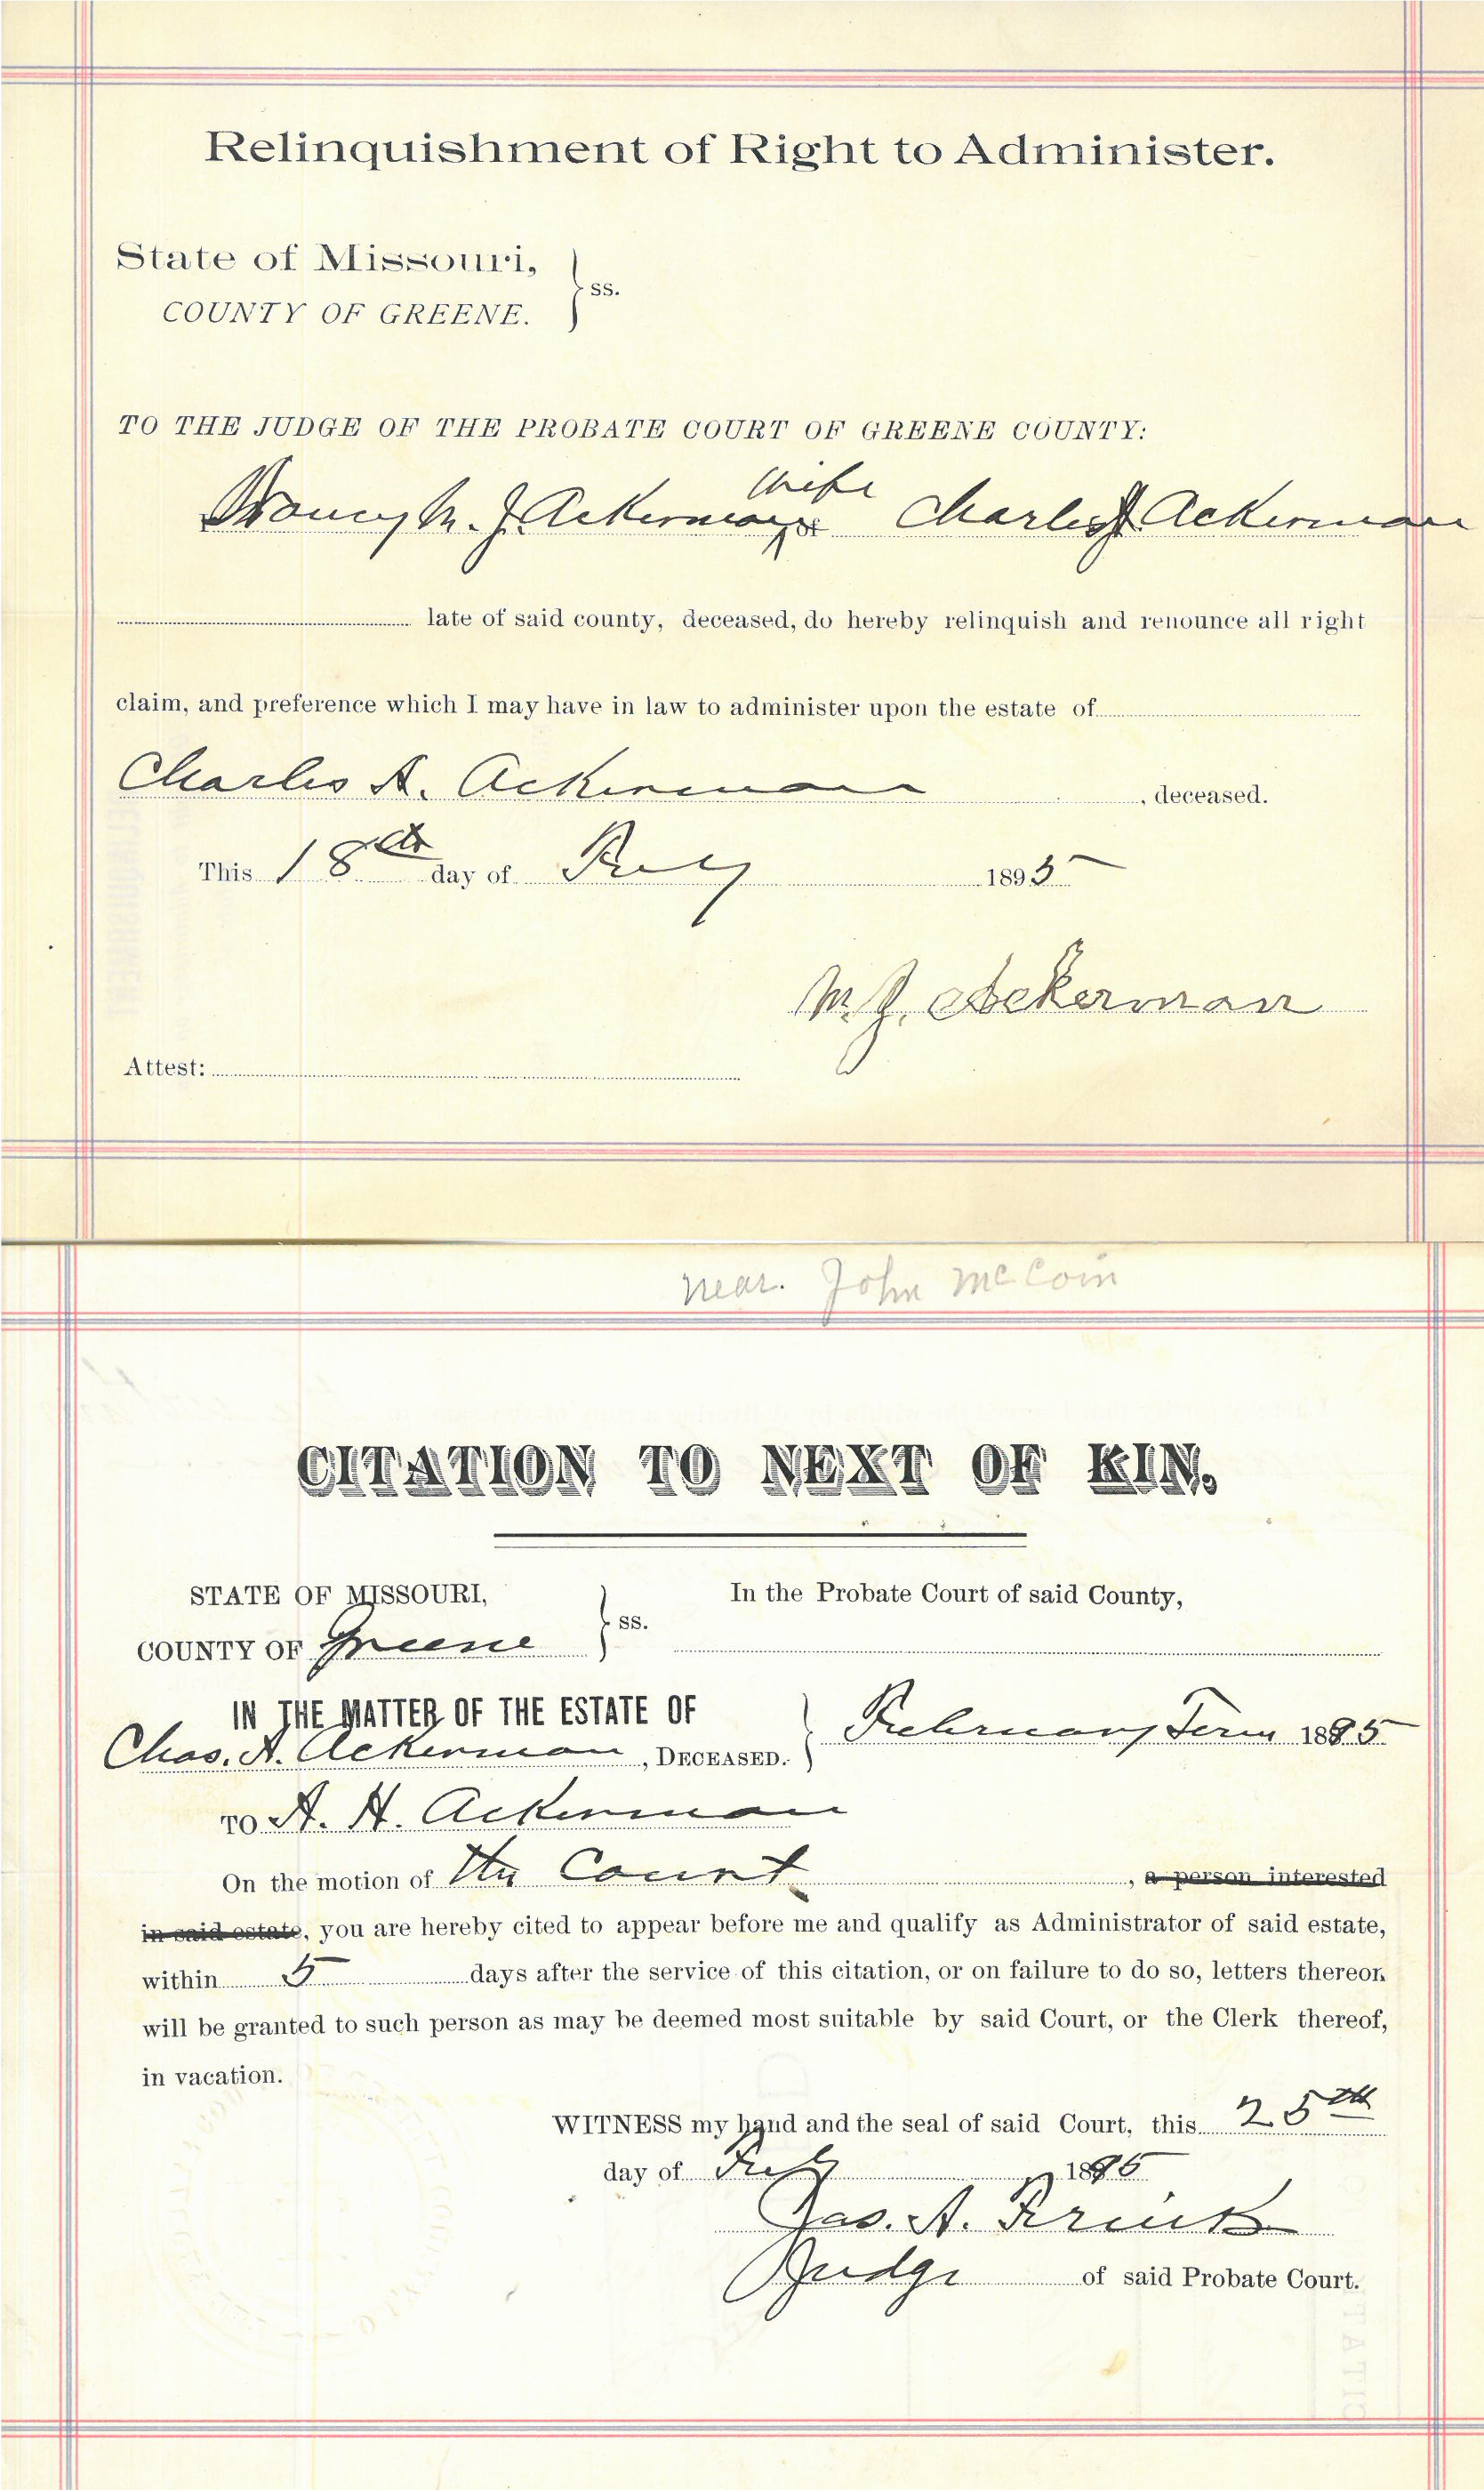 Relinquishment of Right to Administer.
State of Missouri,
COUNTY OF GREENE.
ss.
TO THE JUDGE OF THE PROBATE COURT OF GREENE COUNTY:
wife
Nancy M. J. Ackerman of Charles A Ackerman
late of said county, deceased, do hereby relinquish and renounce all right
claim, and preference which I may have in law to administer upon the estate of
Charles A. Ackerman, deceased.
This 18th day of Feby 1895
M. J. Ackerman
Attest:
near. John McCoin
CITATION TO NEXT OF KIN.
STATE OF MISSOURI,
COUNTY OF Greene
ss.
In the Probate Court of said County,
IN THE MATTER OF THE ESTATE OF
Chas. A. Ackerman, DECEASED.
February Term 1895
TO A. H. Ackerman
On the motion of the Court, a person interested
in said estate, you are hereby cited to appear before me and qualify as Administrator of said estate,
within 5 days after the service of this citation, or on failure to do so, letters thereon
will be granted to such person as may be deemed most suitable by said Court, or the Clerk thereof,
in vacation.
WITNESS my hand and the seal of said Court, this 25th
day of Feby 1895
Jas. A.
Judge of said Probate Court.